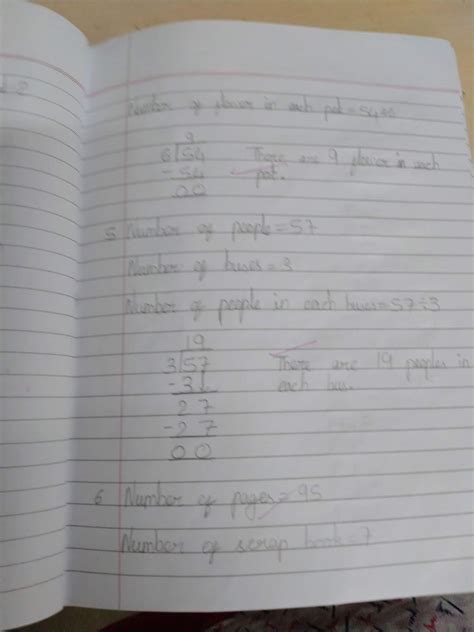 Number of flower in each pot = 54÷6
9
6 54 There are 9 flower in each
- 54 pot.
00
5 Number of people = 57
Number of buses = 3
Number of people in each buses = 57÷3
19
3 57 There are 19 peoples in
- 3↓ each bus.
27
- 27
00
6 Number of pages = 95
Number of scrap book = 7